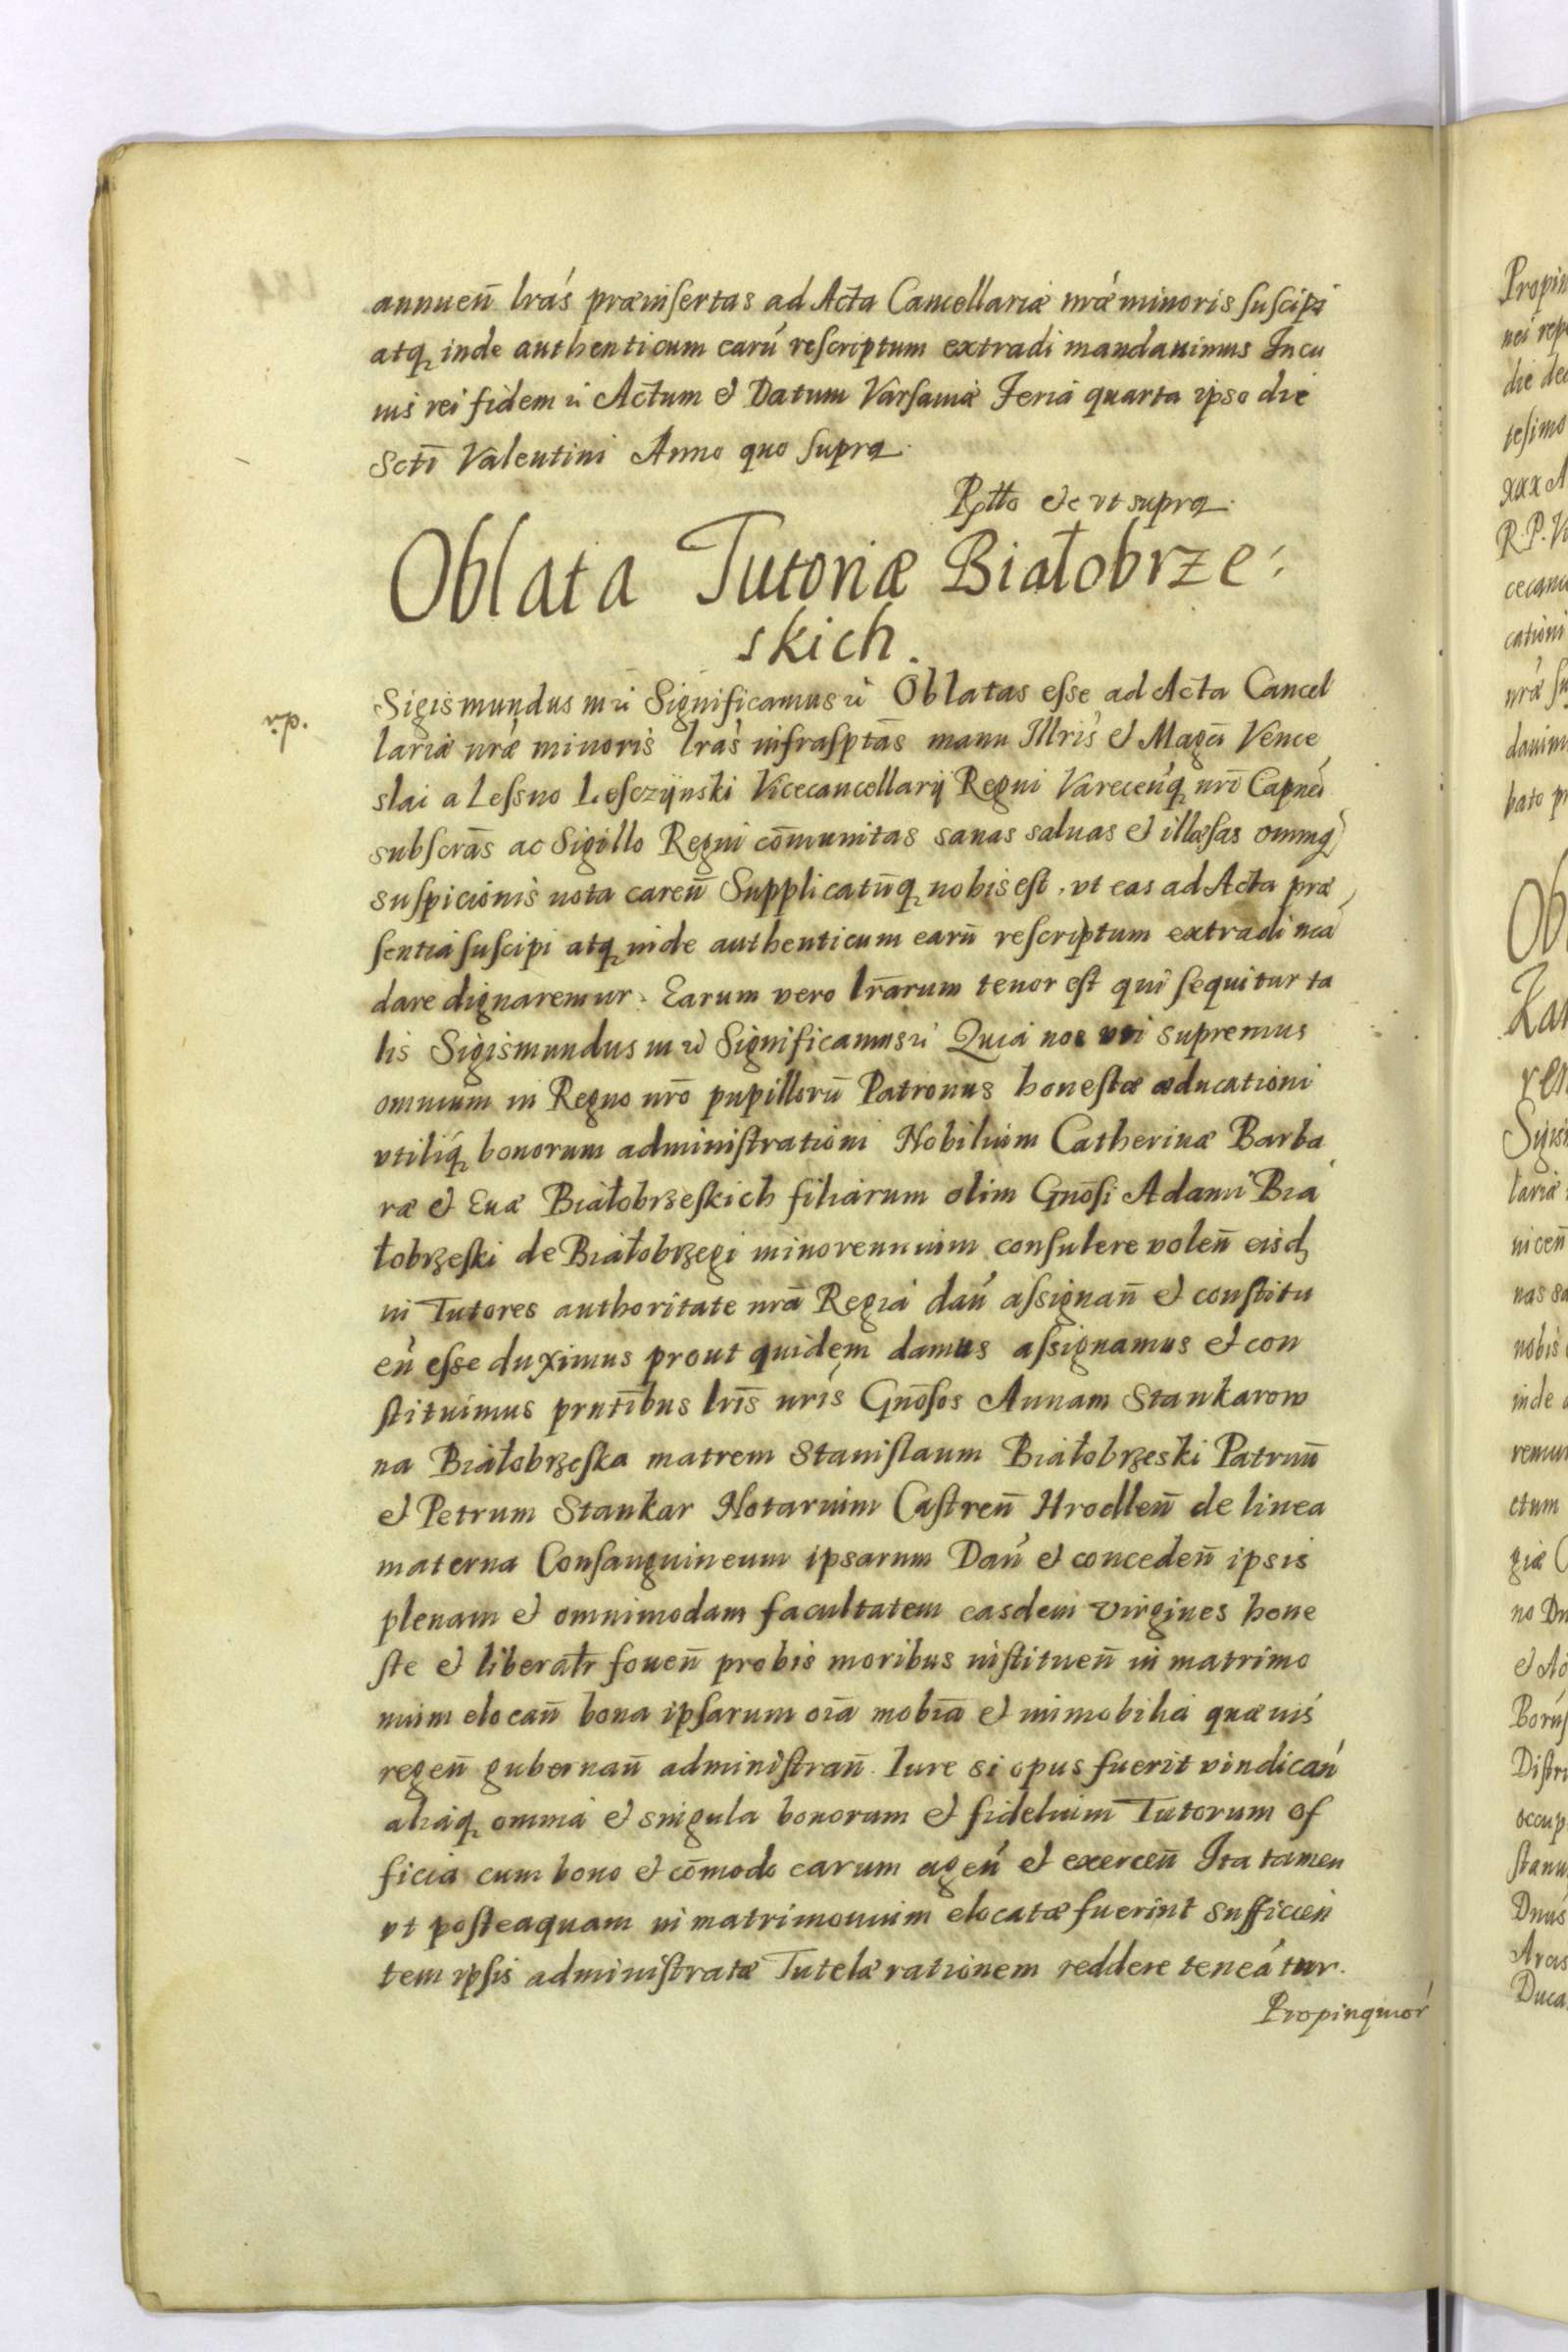 annuen̄ lrás præinsertas ad Acta Cancellariæ nræ minoris suscipi
atq. inde authenticum earū rescriptum extradi mandauimus In cu
ius rei fidem ū Actum et Datum Varsauiæ Feria quarta ipso die
Sctī Valentini Anno quo supra.
Rptto etc vt supra.
Oblata Tutoriæ Białobrze:
skich.
Sigismundus iii ū Significamus ū Oblatas esse ad Acta Cancel
lariæ nræ minoris lras infrasptas manu Illris et Magci Vence
slai a Lessno Lesczÿnski Vicecancellarÿ Regni Vareceńq. nrō Capnei
subscrās ac Sigillo Regni cōmunitas sanas saluas et illæsas omniq.
suspicionis nota caren̄ Supplicatūq. nobis est, vt eas ad Acta præ
sentia suscipi atq. inde authenticum earū rescriptum extradi mā
dare dignaremur. Earum vero lrārum tenor est qui sequitur ta
lis Sigismundus iii ū Significamus ū Quia nos vti supremus
omnium in Regno nrō pupillorū Patronus honestæ æducationi
vtiliq. bonorum administrationi Nobilium Catherinæ Barba
ræ et Euæ Białobrzeskich filiarum olim Gnōsi Adami Bia
łobrzeski de Białobrzegi minorennium consulere volen̄ eisd.
in Tutores authoritate nrā Regia dań assignan̄ et constitu
eń esse duximus prout quidem damus assignamus et con
stituimus prntībus lrīs nrīs Gnōsos Annam Stankarow
na Białobrzeska matrem Stanislaum Białobrzeski Patruū
et Petrum Stankar Notarium Castren̄ Hrodlen̄ de linea
materna Consanguineum ipsarum Dań et conceden̄ ipsis
plenam et omnimodam facultatem easdem virgines hone
ste et liberalr fouen̄ probis moribus instituen̄ in matrimo
nium elocan̄ bona ipsarum oīa mobīa et immobilia quæuis
regen̄ gubernan̄ administran̄ Iure si opus fuerit vindicań
aliaq. omnia et singula bonorum et fidelium Tutorum of
ficia cum bono et cōmodo earum ageń et exercen̄ Ita tamen
vt posteaquam in matrimonium elocatæ fuerint sufficien
tem ipsis administratæ Tutelæ rationem reddere teneātur.
Propinquior